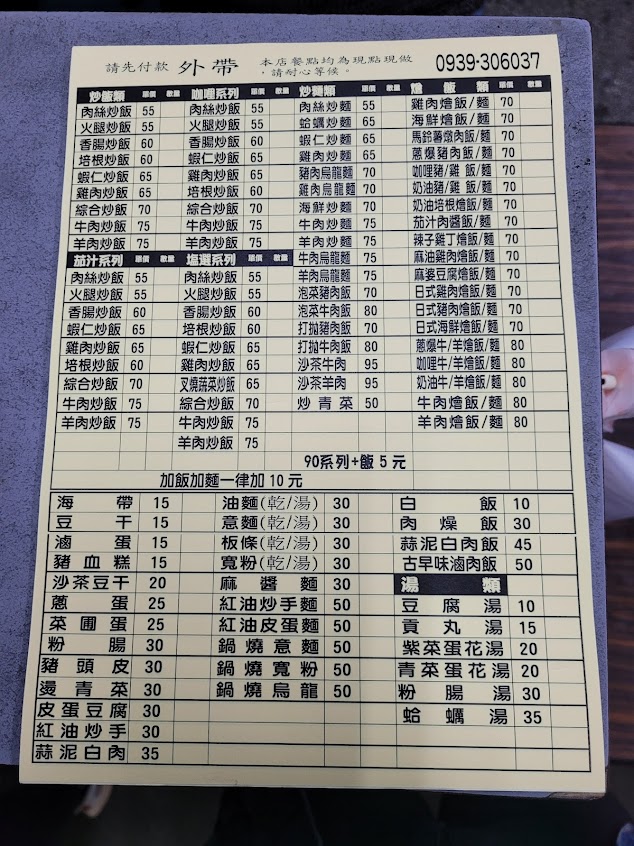 請先付款 外帶 本店餐點均為現點現做 0939-306037
，請耐心等候。
炒飯類 單價 數量
肉絲炒飯 55
火腿炒飯 55
香腸炒飯 60
培根炒飯 60
蝦仁炒飯 65
雞肉炒飯 65
綜合炒飯 70
牛肉炒飯 75
羊肉炒飯 75
茄汁系列 單價 數量
肉絲炒飯 55
火腿炒飯 55
香腸炒飯 60
蝦仁炒飯 65
雞肉炒飯 65
培根炒飯 60
綜合炒飯 70
牛肉炒飯 75
羊肉炒飯 75
咖哩系列 單價 數量
肉絲炒飯 55
火腿炒飯 55
香腸炒飯 60
蝦仁炒飯 65
雞肉炒飯 65
培根炒飯 60
綜合炒飯 70
牛肉炒飯 75
羊肉炒飯 75
單價 數量
肉絲炒飯 55
火腿炒飯 55
香腸炒飯 60
培根炒飯 60
蝦仁炒飯 65
雞肉炒飯 65
叉燒蔬菜炒飯 65
綜合炒飯 70
牛肉炒飯 75
羊肉炒飯 75
炒麵類 單價 數量
肉絲炒麵 55
蛤蠣炒麵 65
蝦仁炒麵 65
雞肉炒麵 65
豬肉烏龍麵 70
雞肉烏龍麵 70
海鮮炒麵 70
牛肉炒麵 75
羊肉炒麵 75
牛肉烏龍麵 75
羊肉烏龍麵 75
泡菜豬肉飯 70
泡菜牛肉飯 80
打拋豬肉飯 70
打拋牛肉飯 80
沙茶牛肉 95
沙茶羊肉 95
炒青菜 50
燴飯類 單價 數量
雞肉燴飯/麵 70
海鮮燴飯/麵 70
馬鈴薯燉肉飯/麵 70
蔥爆豬肉飯/麵 70
咖哩豬/雞飯/麵 70
奶油豬/雞飯/麵 70
奶油培根燴飯/麵 70
茄汁肉醬飯/麵 70
辣子雞丁燴飯/麵 70
麻油雞肉燴飯/麵 70
麻婆豆腐燴飯/麵 70
日式雞肉燴飯/麵 70
日式豬肉燴飯/麵 70
日式海鮮燴飯/麵 70
蔥爆牛/羊燴飯/麵 80
咖哩牛/羊燴飯/麵 80
奶油牛/羊燴飯/麵 80
牛肉燴飯/麵 80
羊肉燴飯/麵 80
90系列+飯 5 元
加飯加麵一律加 10 元
海帶 15
豆干 15
滷蛋 15
豬血糕 15
沙茶豆干 20
蔥蛋 25
菜圃蛋 25
粉腸 30
豬頭皮 30
燙青菜 30
皮蛋豆腐 30
紅油炒手 30
蒜泥白肉 35
油麵(乾/湯) 30
意麵(乾/湯) 30
板條(乾/湯) 30
寬粉(乾/湯) 30
麻醬麵 30
紅油炒手麵 50
紅油皮蛋麵 50
鍋燒意麵 50
鍋燒寬粉 50
鍋燒烏龍 50
白飯 10
肉燥飯 30
蒜泥白肉飯 45
古早味滷肉飯 50
湯類
豆腐湯 10
貢丸湯 15
紫菜蛋花湯 20
青菜蛋花湯 20
粉腸湯 30
蛤蠣湯 35